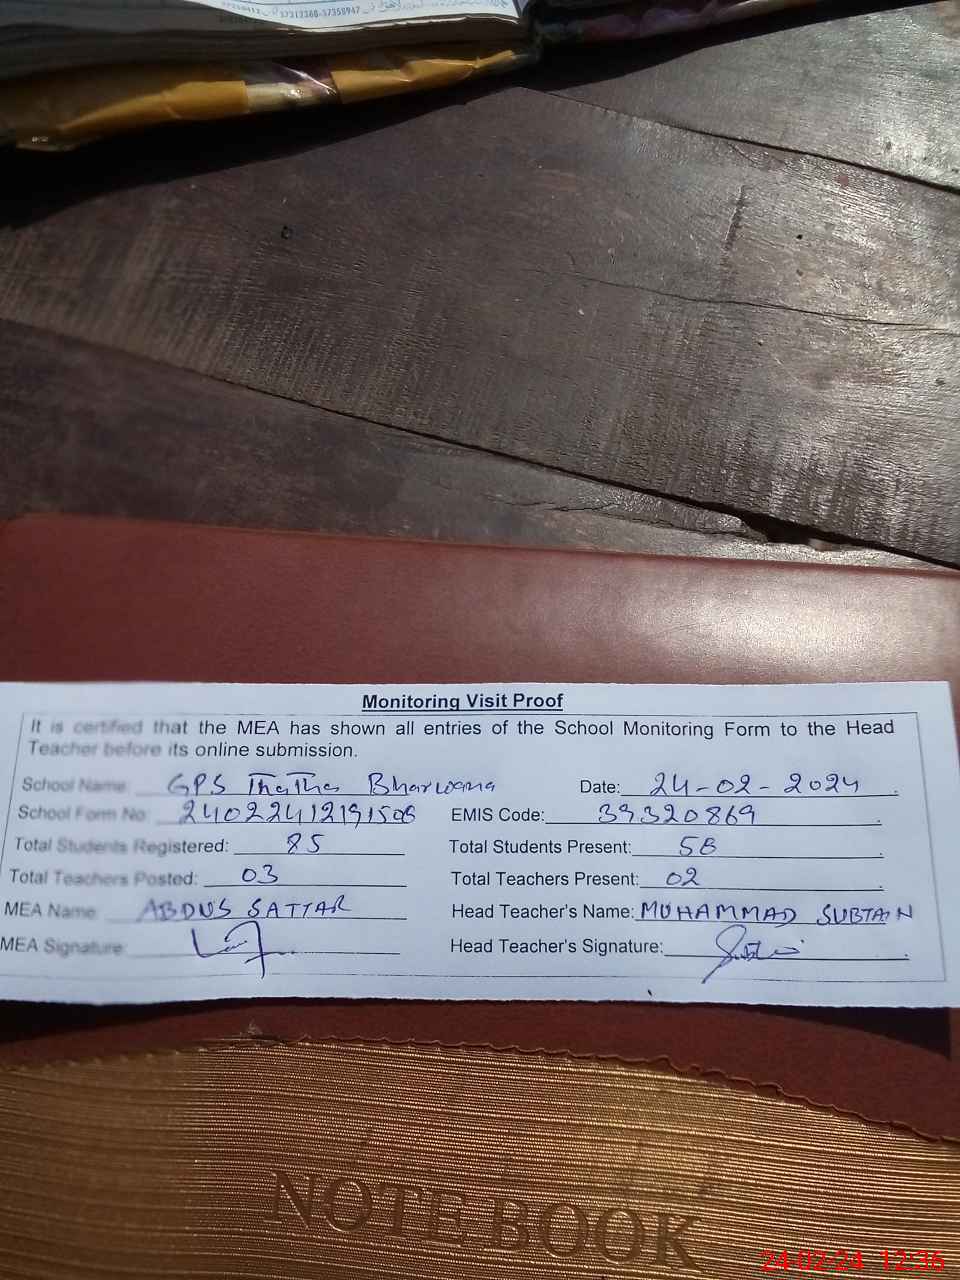 37313360-37358947
Monitoring Visit Proof
It is certified that the MEA has shown all entries of the School Monitoring Form to the Head
Teacher before its online submission.
School Name: GPS ThaTha Bharwana Date: 24-02-2024
School Form No: 24022412191506 EMIS Code: 33320869
Total Students Registered: 85 Total Students Present: 58
Total Teachers Posted: 03 Total Teachers Present: 02
MEA Name: ABDUS SATTAR Head Teacher's Name: MUHAMMAD SUBTAIN
MEA Signature: Head Teacher's Signature:
NOTE BOOK
24-02-24 12:36